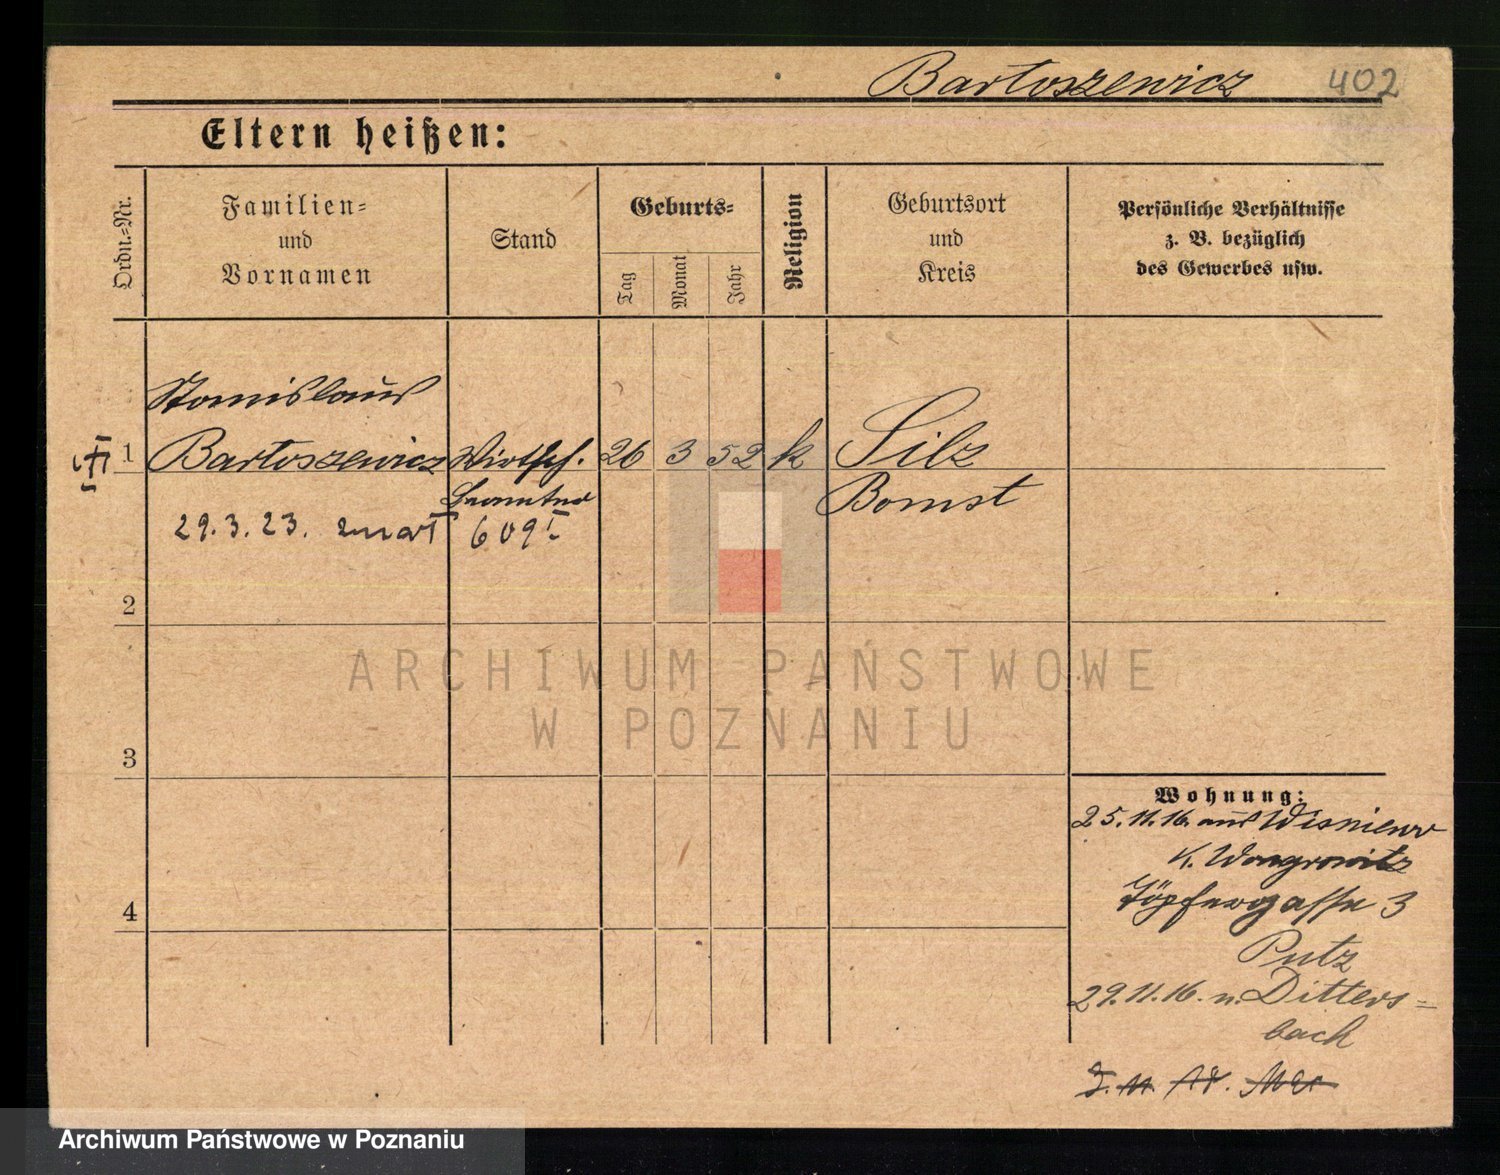 Bartoszewicz 402
Eltern heißen:
Ordn.-Nr.
Familien-
und
Vornamen
Stand
Geburts-
Tag
Monat
Jahr
Religion
Geburtsort
und
Kreis
Persönliche Verhältnisse
z. B. bezüglich
des Gewerbes usw.
Stanislaus
1 Bartoszewicz Wirtsch. 26 3 52 k Silz
Beamter Bomst
29.3.23. zmarł 609 I
2
3
4
Wohnung:
25.11.16. aus Wisniewo
K. Wongrowitz
Töpfergasse 3
Putz
29.11.16. n. Ditters-
bach
ARCHIWUM PAŃSTWOWE
W POZNANIU
Archiwum Państwowe w Poznaniu